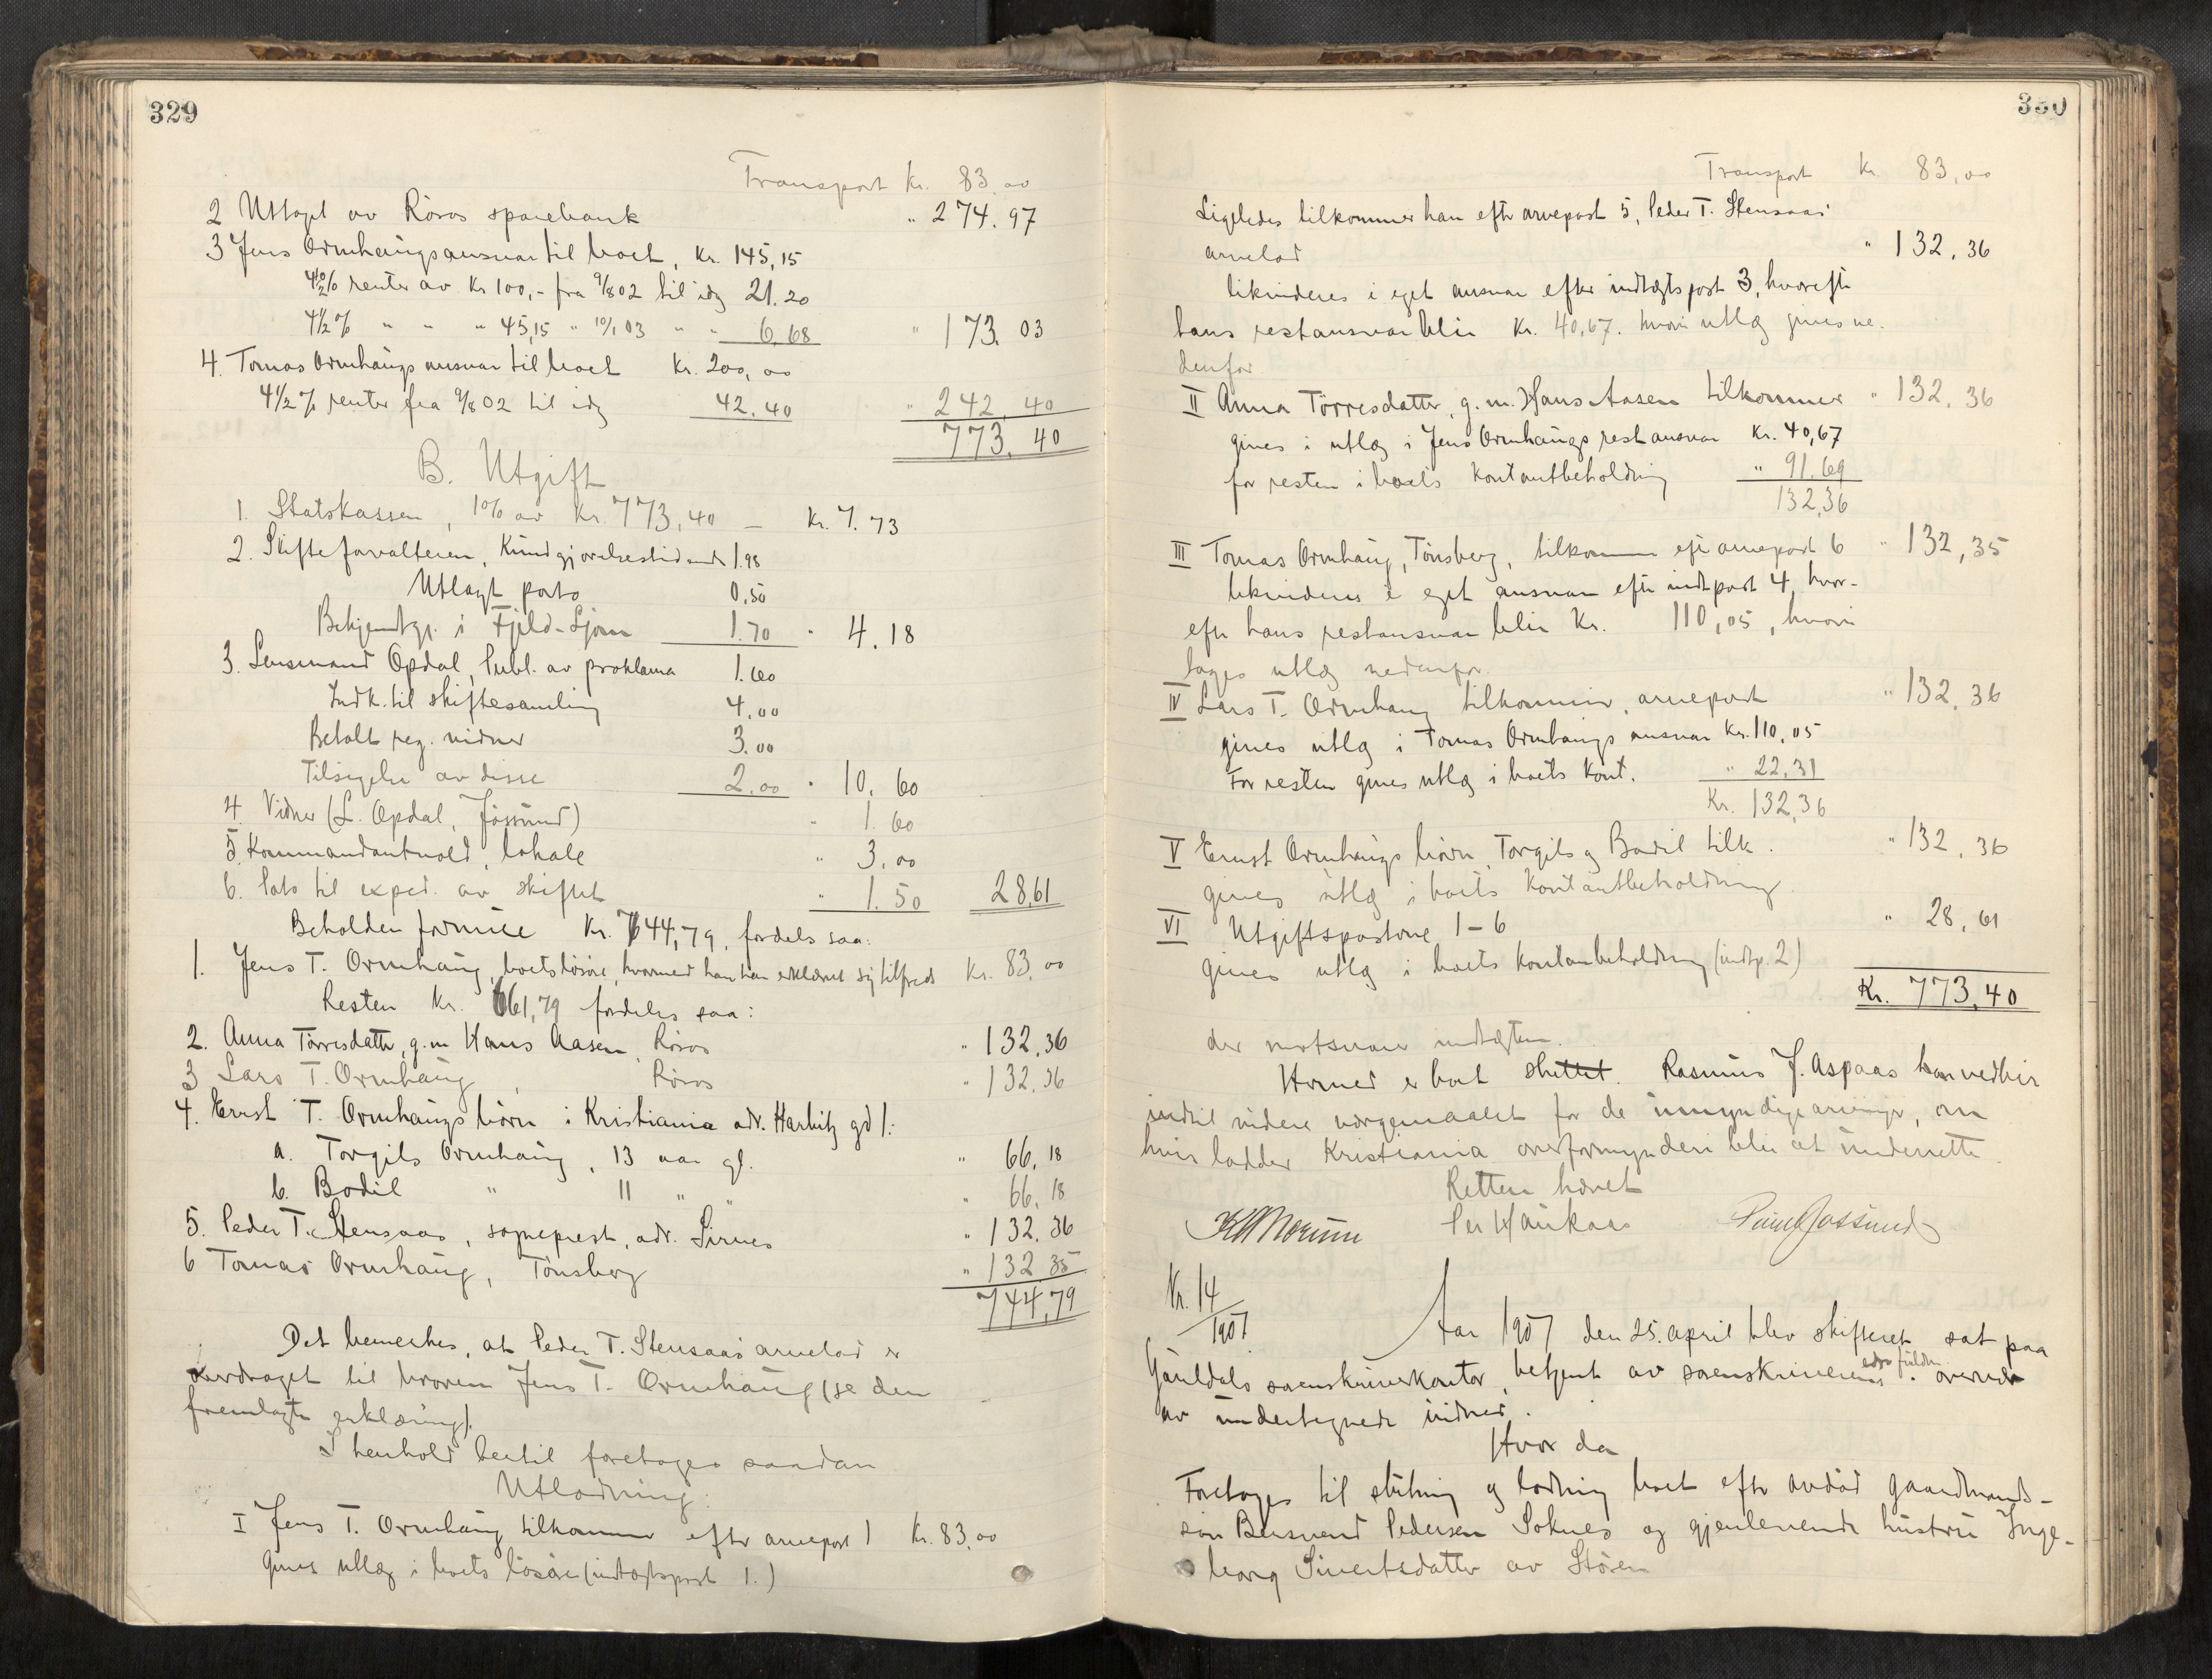 329
Transport Kr. 83.00
2 Uttaget av Röros sparebank " 274.97
3 Jens Ormhaugs ansvar til boet, Kr. 145,15
4½% renter av Kr 100,- fra 9/8 02 til idg 21.20
4½% " " " 45,15 " 10/1 03 " " 6.68 " 173.03
4. Tomas Ormhaugs ansvar til boet Kr. 200,00
4½% renter fra 9/8 02 til idg 42.40 " 242.40
773.40
B. Utgift
1. Statskassen, 1% av Kr. 773,40 — Kr. 7.73
2. Skifteforvalteren, Kundgjörelsestidende 1.98
Utlagt porto 0,50
Bekjendtgj. i Fjeld-Ljom 1.70 " 4.18
3. Lensmand Opdal, Publ. av proklama 1.60
Indk. til skiftesamling 4.00
Betalt reg. vidner 3.00
Tilsigelse av disse 2.00 " 10.60
4. Vidner (L. Opdal, Jössund) " 1.60
5. Kommandantvold, lokale " 3.00
6. Porto til exped. av skiftet " 1.50 28,61
Beholden formue Kr. 744,79, fordeles saa:
1. Jens T. Ormhaug, boets lösöre, hvormed han har erklæret sig tilfreds Kr. 83.00
Resten Kr. 661,79 fordeles saa:
2. Anna Törresdatter, g.m. Hans Aasen, Röros " 132.36
3 Lars T. Ormhaug, Röros " 132.36
4. Ernst T. Ormhaugs börn i Kristiania adr. Harbitz gd 1:
a. Torgils Ormhaug, 13 aar gl. " 66.18
b. Bodil " 11 " " " 66.18
5. Peder T. Stensaas, sogneprest, adr. Sirnes " 132.36
6 Tomas Ormhaug, Tönsberg " 132.35
744,79
Det bemerkes, at Peder T. Stensaas arvelod er
overdraget til broren Jens T. Ormhaug (se den
fremlagte erklæring).
I henhold hertil foretages saadan
Utlodning:
I Jens T. Ormhaug tilkommer efter arvepost 1 Kr. 83,00
gives utlæg i boets lösöre (indtægtspost 1.)
330
Transport Kr. 83,00
Ligeledes tilkommer han efter arvepost 5, Peder T. Stensaas'
arvelod " 132,36
likvideres i eget ansvar efter indtægtspost 3, hvorefter
hans restansvar blir Kr. 40,67. hvori utlæg gives ne-
denfor.
II Anna Törresdatter, g.m. Hans Aasen tilkommer " 132,36
gives i utlæg i Jens Ormhaugs restansvar Kr. 40,67
for resten i boets kontantbeholdning " 91.69
132,36
III Tomas Ormhaug, Tönsberg, tilkommer efter arvepost 6 " 132,35
likvideres i eget ansvar efter indt.post 4, hvor-
efter hans restansvar blir Kr. 110,05, hvori
tages utlæg nedenfor.
IV Lars T. Ormhaug tilkommer, arvepost " 132,36
gives utlæg i Tomas Ormhaugs ansvar Kr. 110,05
For resten gives utlæg i boets kont. " 22,31
Kr. 132,36
V Ernst Ormhaugs börn, Torgils og Bodil tilk. " 132,36
gives utlæg i boets kontantbeholdning.
VI Utgiftspostene 1-6 " 28,61
gives utlæg i boets kontantbeholdning (indtp. 2)
Kr. 773,40
der motsvarer indtægten.
Hermed er boet sluttet. Rasmus J. Aspaas har vedblir
indtil videre vergemaalet for de umyndige arvinger, om
hvis lodder Kristiania overformynderi blir at underrette.
Retten hævet
Per Haukaas
Paul Jossund
Nr. 14/1907.
Aar 1907 den 25. april blev skifteret sat paa
Gauldals sorenskriverkontor, betjent av sorenskriverens edsv. fuldm. i overvær
av undertegnede vidner.
Hvor da
Foretoges til slutning og lodning boet efter avdöd gaardmands-
sön Bersvend Pedersen Soknes og gjenlevende hustru Inge-
borg Sivertsdatter av Stören